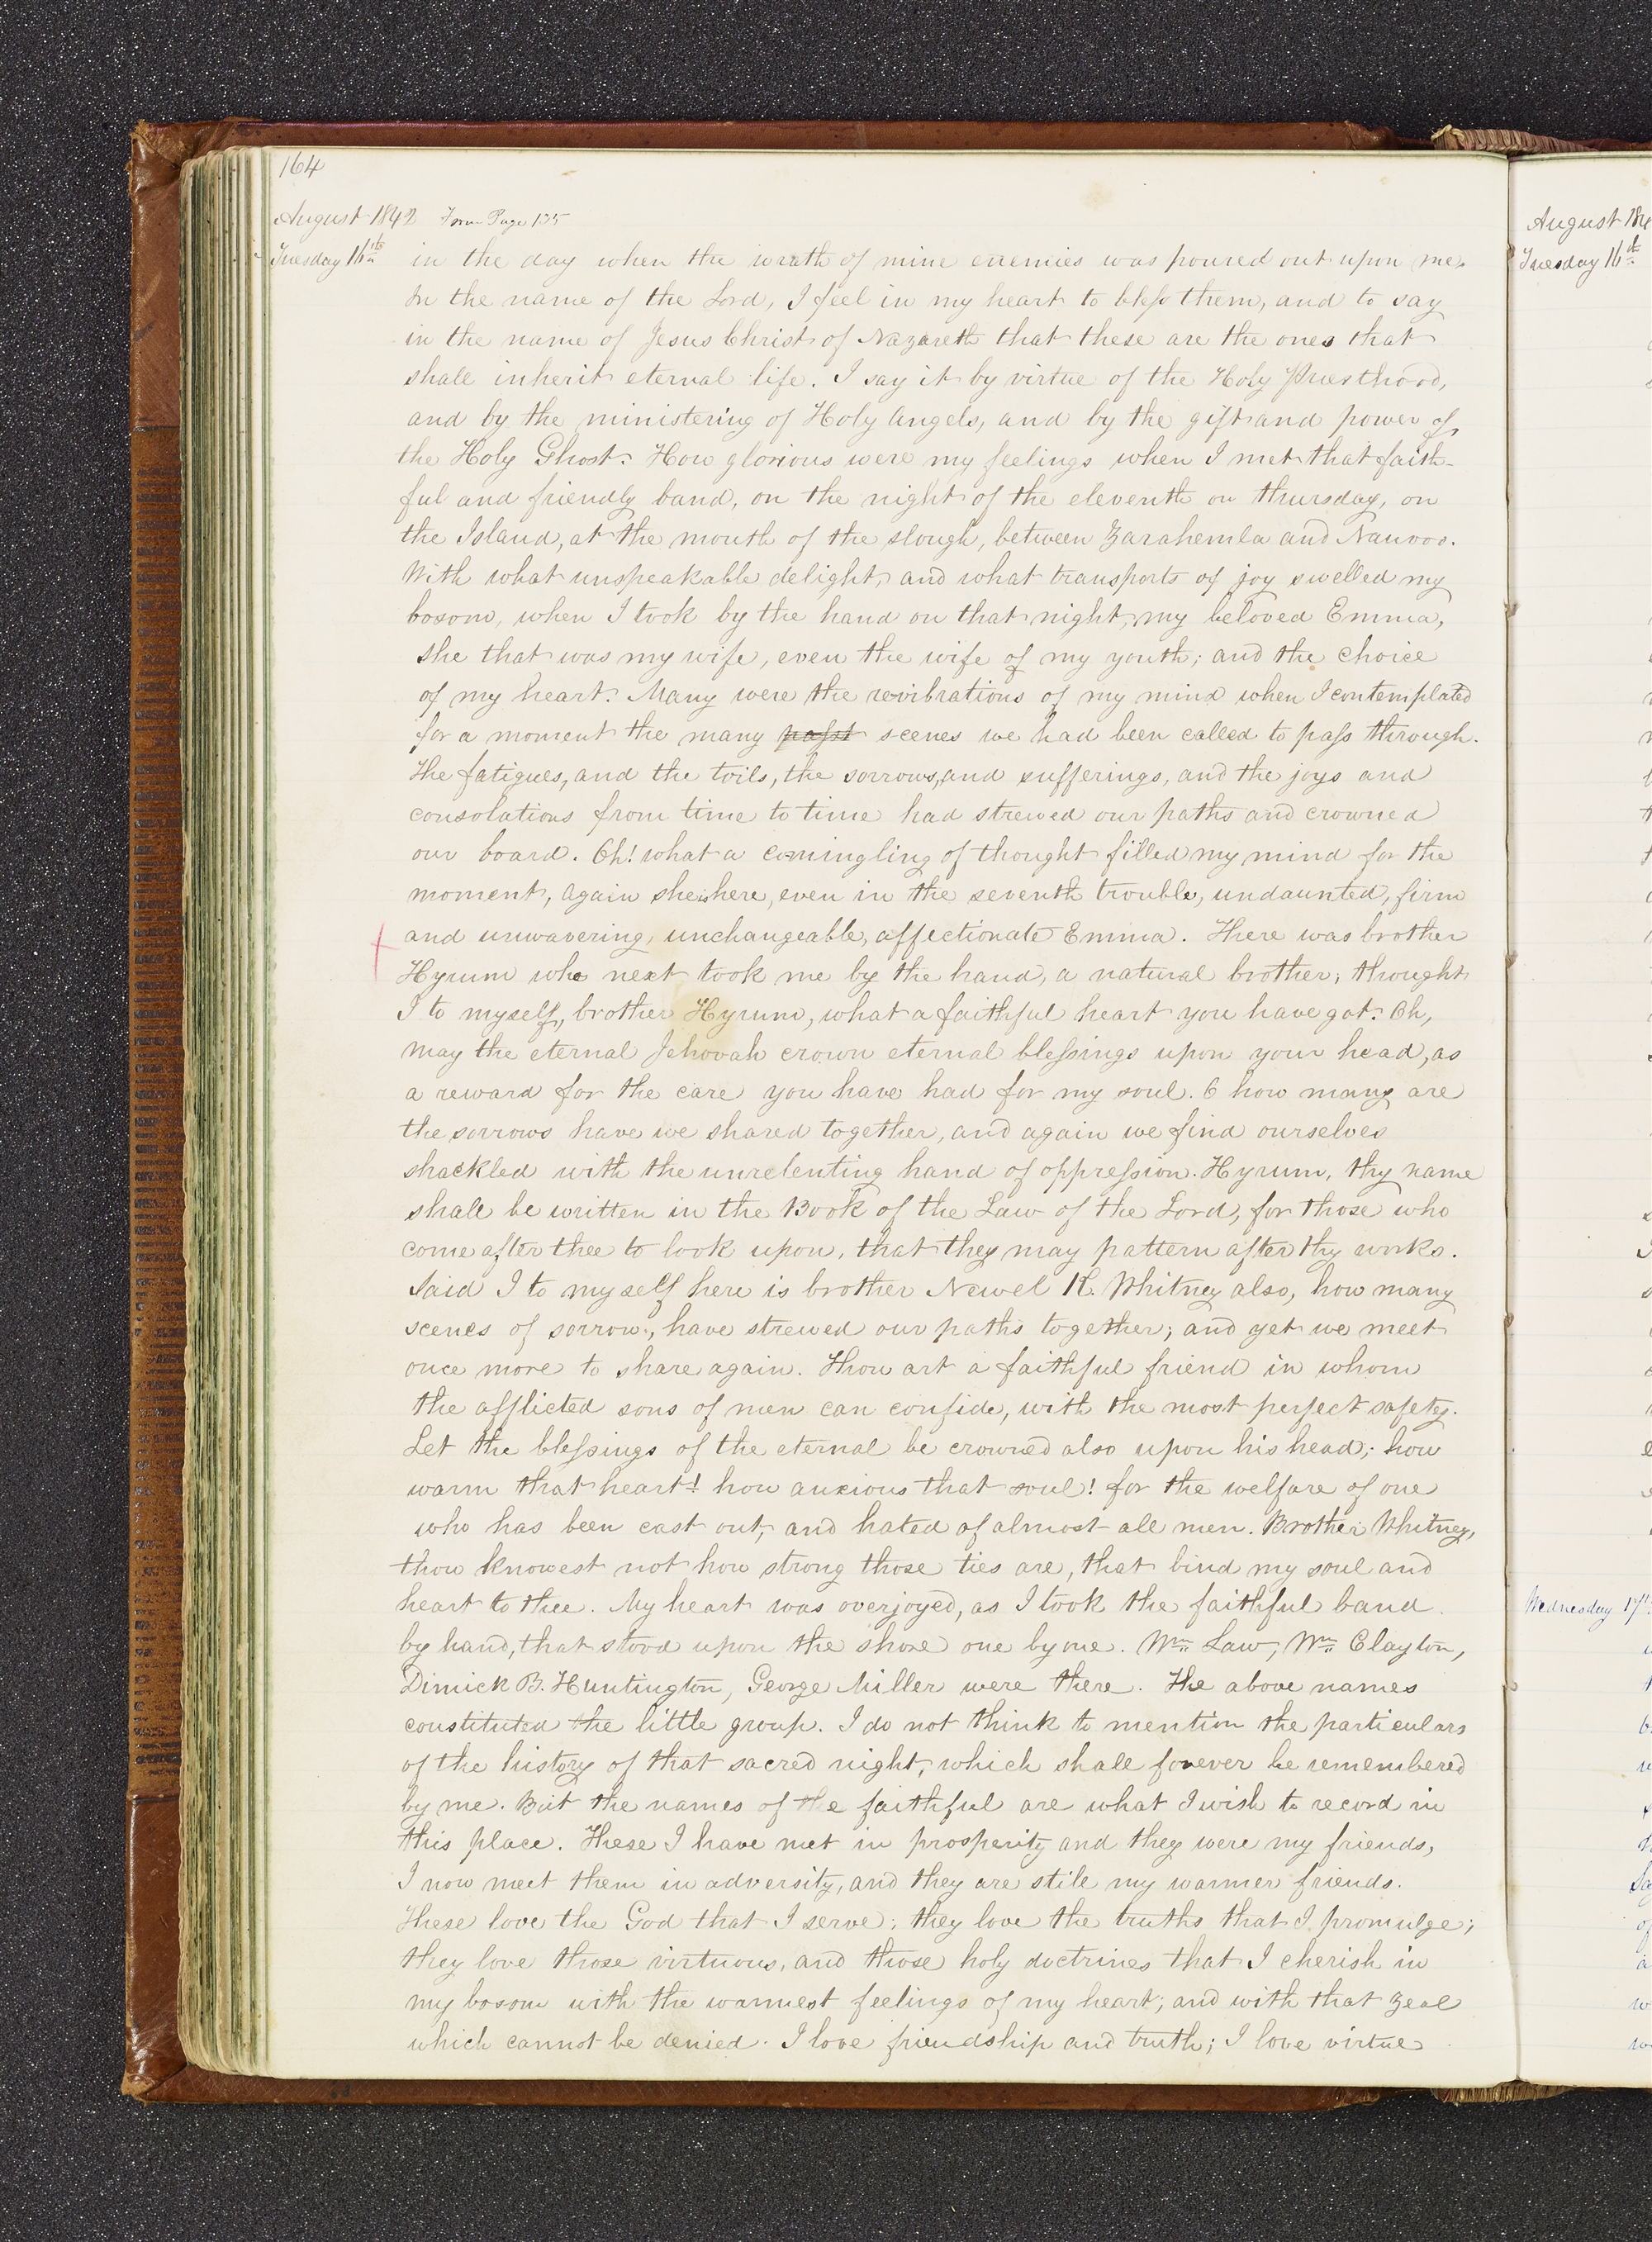 164
August 1842 From Page 135
Tuesday 16th in the day when the wrath of mine enemies was poured out upon me.
In the name of the Lord, I feel in my heart to bless them, and to say
in the name of Jesus Christ of Nazareth that these are the ones that
shall inherit eternal life. I say it by virtue of the Holy Priesthood,
and by the ministering of Holy Angels, and by the gift and power of
the Holy Ghost. How glorious were my feelings when I met that faith-
ful and friendly band, on the night of the eleventh on thursday, on
the Island, at the mouth of the slough, between Zarahemla and Nauvoo.
With what unspeakable delight, and what transports of joy swelled my
bosom, when I took by the hand on that night, my beloved Emma,
she that was my wife, even the wife of my youth; and the choice
of my heart. Many were the revibrations of my mind when I contemplated
for a moment the many past scenes we had been called to pass through.
The fatigues, and the toils, the sorrows, and sufferings, and the joys and
consolations from time to time had strewed our paths and crowned
our board. Oh! what a comingling of thought filled my mind for the
moment, Again she is here, even in the seventh trouble, undaunted, firm
and unwavering, unchangeable, affectionate Emma. There was brother
Hyrum who next took me by the hand, a natural brother; thought
I to myself, brother Hyrum, what a faithful heart you have got. Oh,
may the eternal Jehovah crown eternal blessings upon your head, as
a reward for the care you have had for my soul. O how many are
the sorrows have we shared together, and again we find ourselves
shackled with the unrelenting hand of oppression. Hyrum, thy name
shall be written in the Book of the Law of the Lord, for those who
come after thee to look upon, that they may pattern after thy works.
Said I to myself here is brother Newel K. Whitney also, how many
scenes of sorrow, have strewed our paths together; and yet we meet
once more to share again. Thou art a faithful friend in whom
the afflicted sons of men can confide, with the most perfect safety.
Let the blessings of the eternal be crowned also upon his head; how
warm that heart! how anxious that soul! for the welfare of one
who has been cast out, and hated of almost all men. Brother Whitney,
thou knowest not how strong those ties are, that bind my soul and
heart to thee. My heart was overjoyed, as I took the faithful band
by hand, that stood upon the shore one by one. Wm. Law, Wm. Clayton,
Dimick B. Huntington, George Miller were there. The above names
constituted the little group. I do not think to mention the particulars
of the history of that sacred night, which shall forever be remembered
by me. But the names of the faithful are what I wish to record in
this place. These I have met in prosperity and they were my friends,
I now meet them in adversity, and they are still my warmer friends.
These love the God that I serve; they love the truths that I promulge;
they love those virtuous, and those holy doctrines that I cherish in
my bosom with the warmest feelings of my heart; and with that zeal
which cannot be denied. I love friendship and truth; I love virtue
August 184
Tuesday 16th
Wednesday 17th